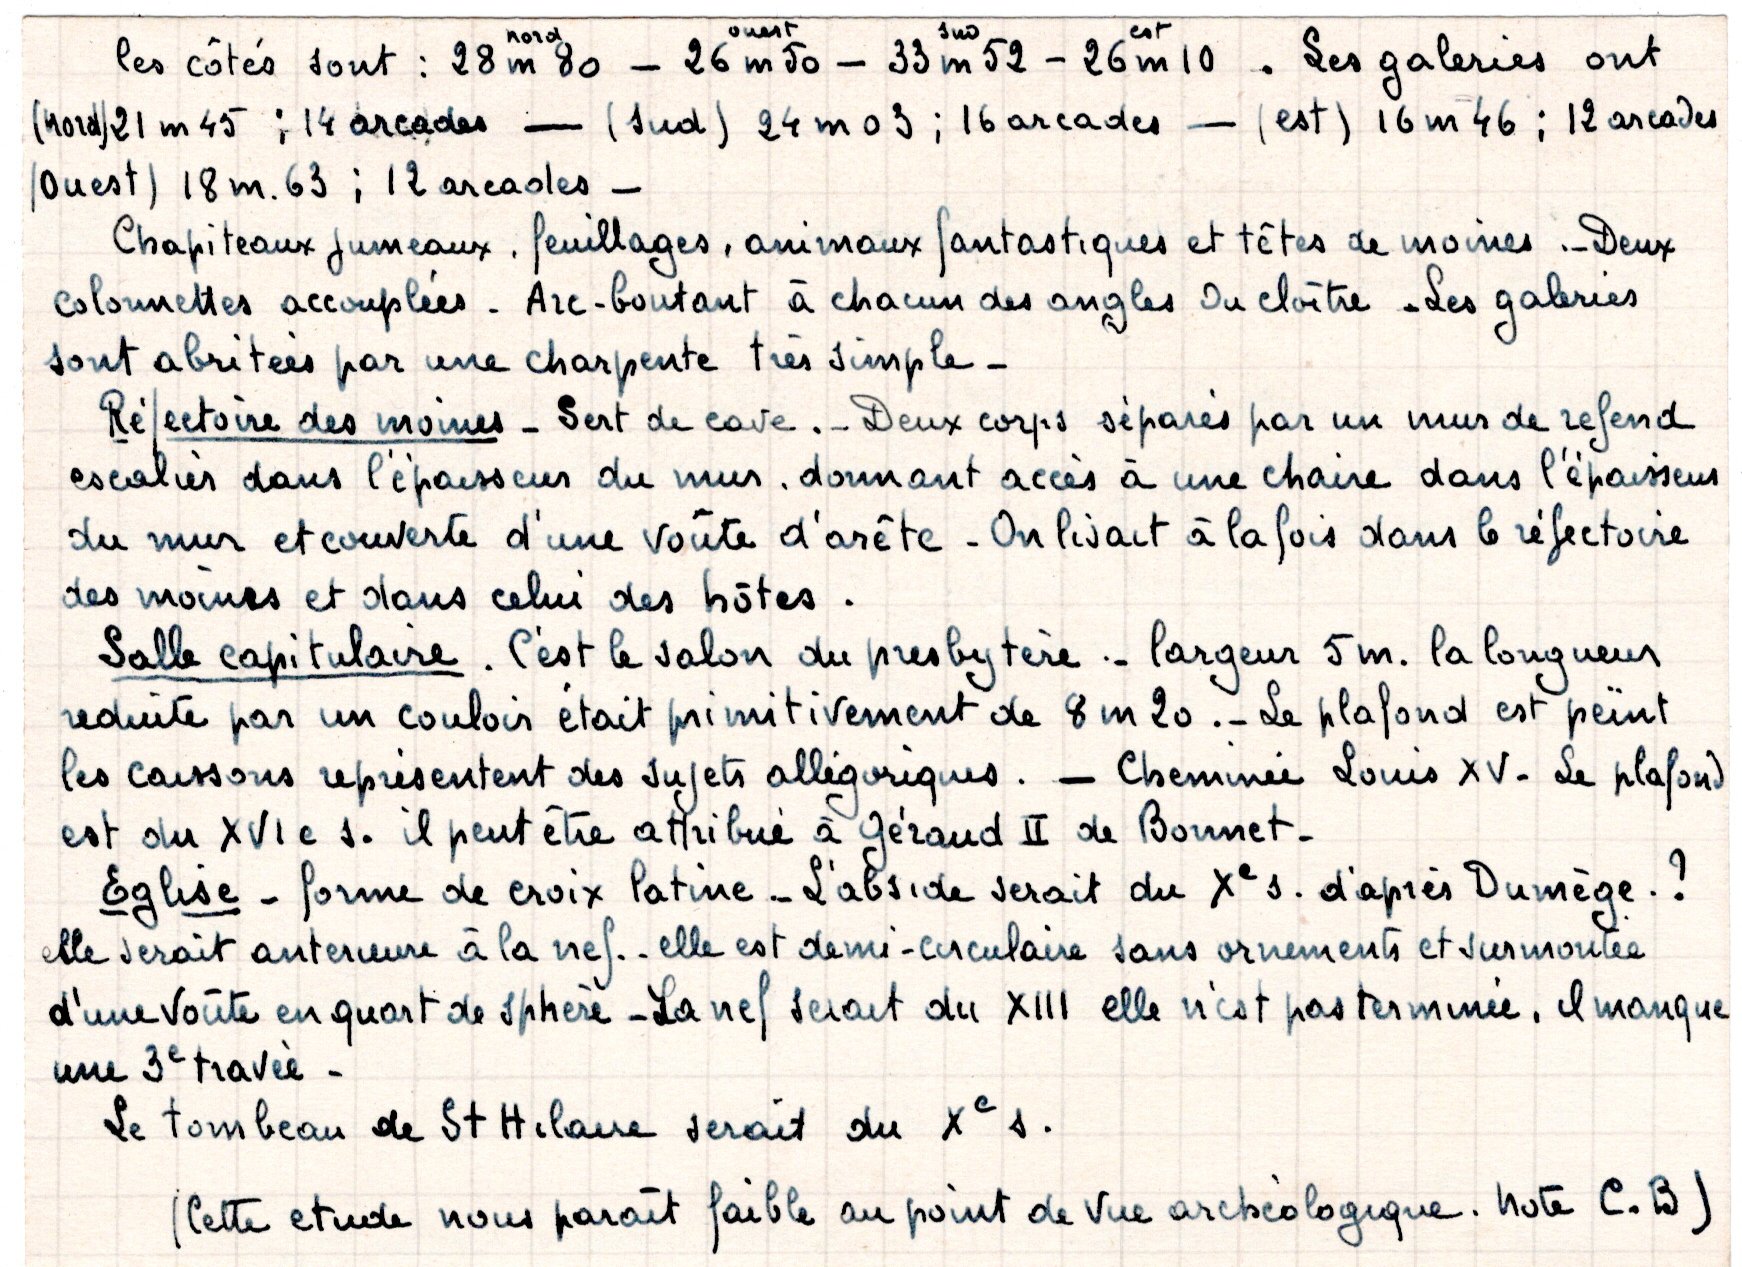 les côtés sont : 28 m 80 (nord) – 26 m 50 (ouest) – 33 m 52 (sud) – 26 m 10 (est) . Les galeries ont
(nord) 21 m 45 ; 14 arcades — (sud) 24 m 03 ; 16 arcades — (est) 16 m 46 ; 12 arcades
(Ouest) 18 m. 63 ; 12 arcades –
Chapiteaux jumeaux, feuillages, animaux fantastiques et têtes de moines .– Deux
colonnettes accouplées – Arc-boutant à chacun des angles du cloître – Les galeries
sont abritées par une charpente très simple –
Réfectoire des moines – Sert de cave .– Deux corps séparés par un mur de refend
escalier dans l'épaisseur du mur, donnant accès à une chaire dans l'épaisseur
du mur et couverte d'une voûte d'arête – On lisait à la fois dans le réfectoire
des moines et dans celui des hôtes .
Salle capitulaire . C'est le salon du presbytère .– largeur 5 m. la longueur
reduite par un couloir était primitivement de 8 m 20 .– Le plafond est peint
les caissons représentent des sujets allégoriques . – Cheminée Louis XV – Le plafond
est du XVI e s. il peut être attribué à Géraud II de Bonnet –
Eglise – forme de croix latine – L'abside serait du Xe s. d'après Dumège . ?
elle serait anterieure à la nef . – elle est demi-circulaire sans ornements et surmontée
d'une voûte en quart de sphère – La nef serait du XIII elle n'est pas terminée, il manque
une 3e travée –
Le tombeau de St Hilaire serait du Xe s .
(Cette etude nous paraît faible au point de vue archéologique . Note C. B)